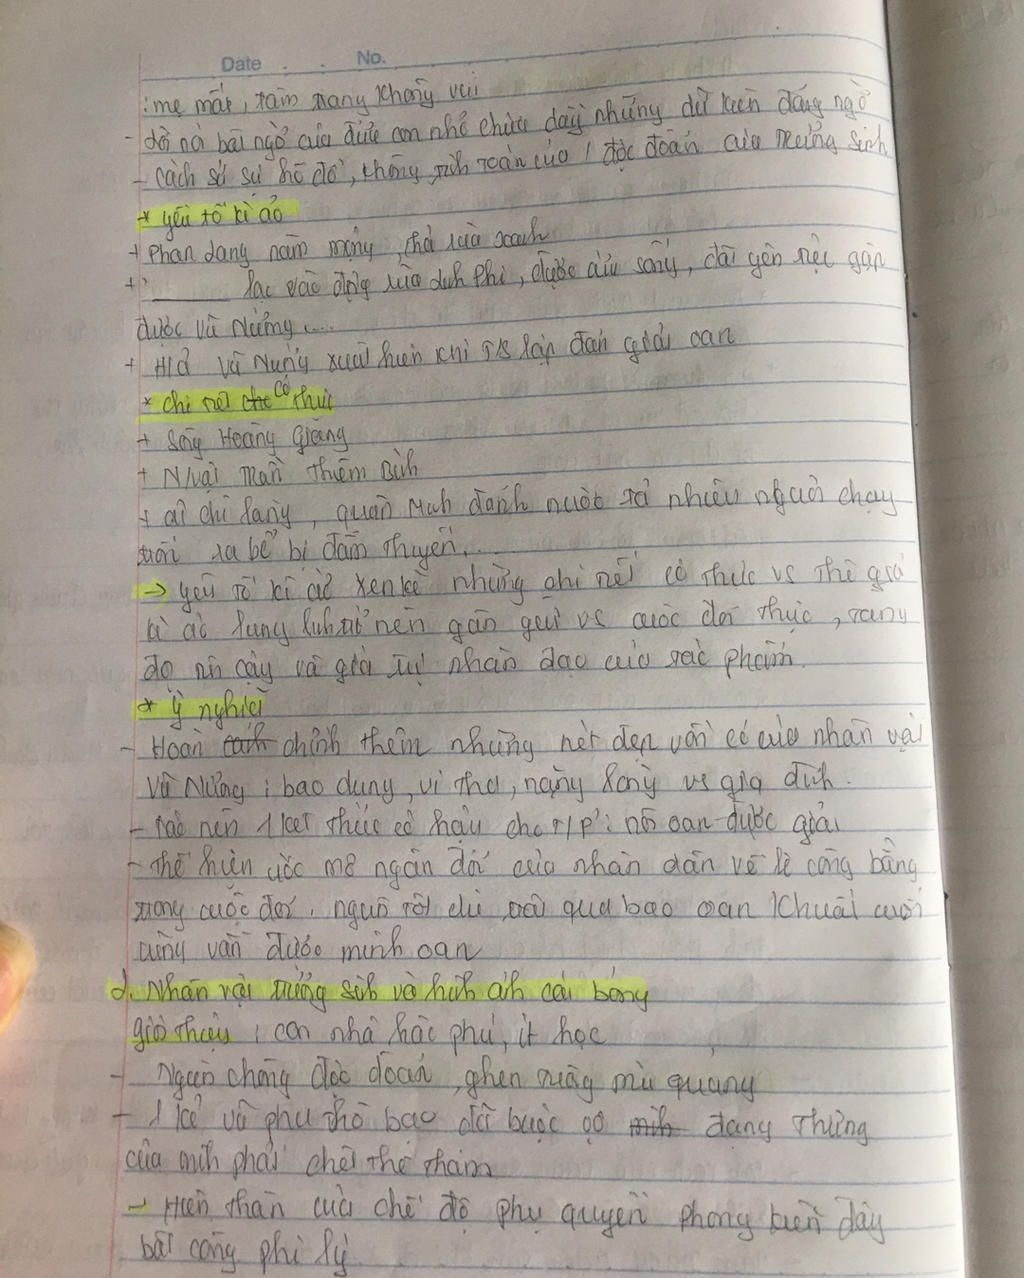 Date . . No.
: mẹ mất, tâm trạng không vui
- lời nói bất ngờ của đứa con nhỏ chứa đầy những dữ kiện đáng ngờ
- cách sử sự hồ đồ, không tính toán của / độc đoán của Trương Sinh
* yếu tố kì ảo
+ Phan Lang nằm mộng, thả rùa xanh
+ " ______ lạc vào động rùa Linh Phi, được cứu sống, đãi yến tiệc gặp
được Vũ Nương...
+ H/a Vũ Nương xuất hiện khi TS lập đàn giải oan
* chi tiết có thực
+ Sông Hoàng Giang
+ N/vật Trần Thiêm Bình
+ ải chi lăng, quân Minh đánh nước ta nhiều người chạy
trốn ra bể bị đắm thuyền...
→ yếu tố kì ảo xen kẽ những chi tiết có thực vs thế giới
kì ảo lung linh trở nên gần gũi vs cuộc đời thực, tăng
độ tin cậy và giá trị nhân đạo của tác phẩm.
* Ý nghĩa
- Hoàn chỉnh thêm những nét đẹp vốn có của nhân vật
Vũ Nương : bao dung, vị tha, nặng lòng vs gia đình.
- tạo nên 1 kết thúc có hậu cho T/P : nỗi oan được giải
- thể hiện ước mơ ngàn đời của nhân dân về lẽ công bằng
trong cuộc đời. người tốt dù trải qua bao oan khuất cuối
cùng vẫn được minh oan
d. Nhân vật trương sinh và hình ảnh cái bóng
giới thiệu : con nhà hào phú, ít học
- Người chồng độc đoán, ghen tuông mù quáng
- 1 kẻ vũ phu thô bạo đã bước đang Thương
của mình phải chết thê thảm
→ Hiện thân của chế độ phụ quyền phong kiến đầy
bất công phi lý